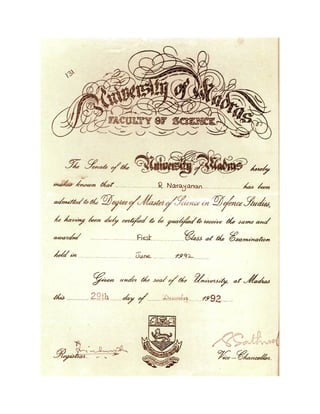 131
University of Madras
FACULTY OF SCIENCE
The Senate of the University of Madras hereby
makes known that R Narayanan has been
admitted to the Degree of Master of Science in Defence Studies,
he having been duly certified to be qualified to receive the same and
awarded First Class at the Examination
held in June 1992
Given under the seal of the University at Madras
this 29th day of December 1992
Registrar.
Vice-Chancellor.